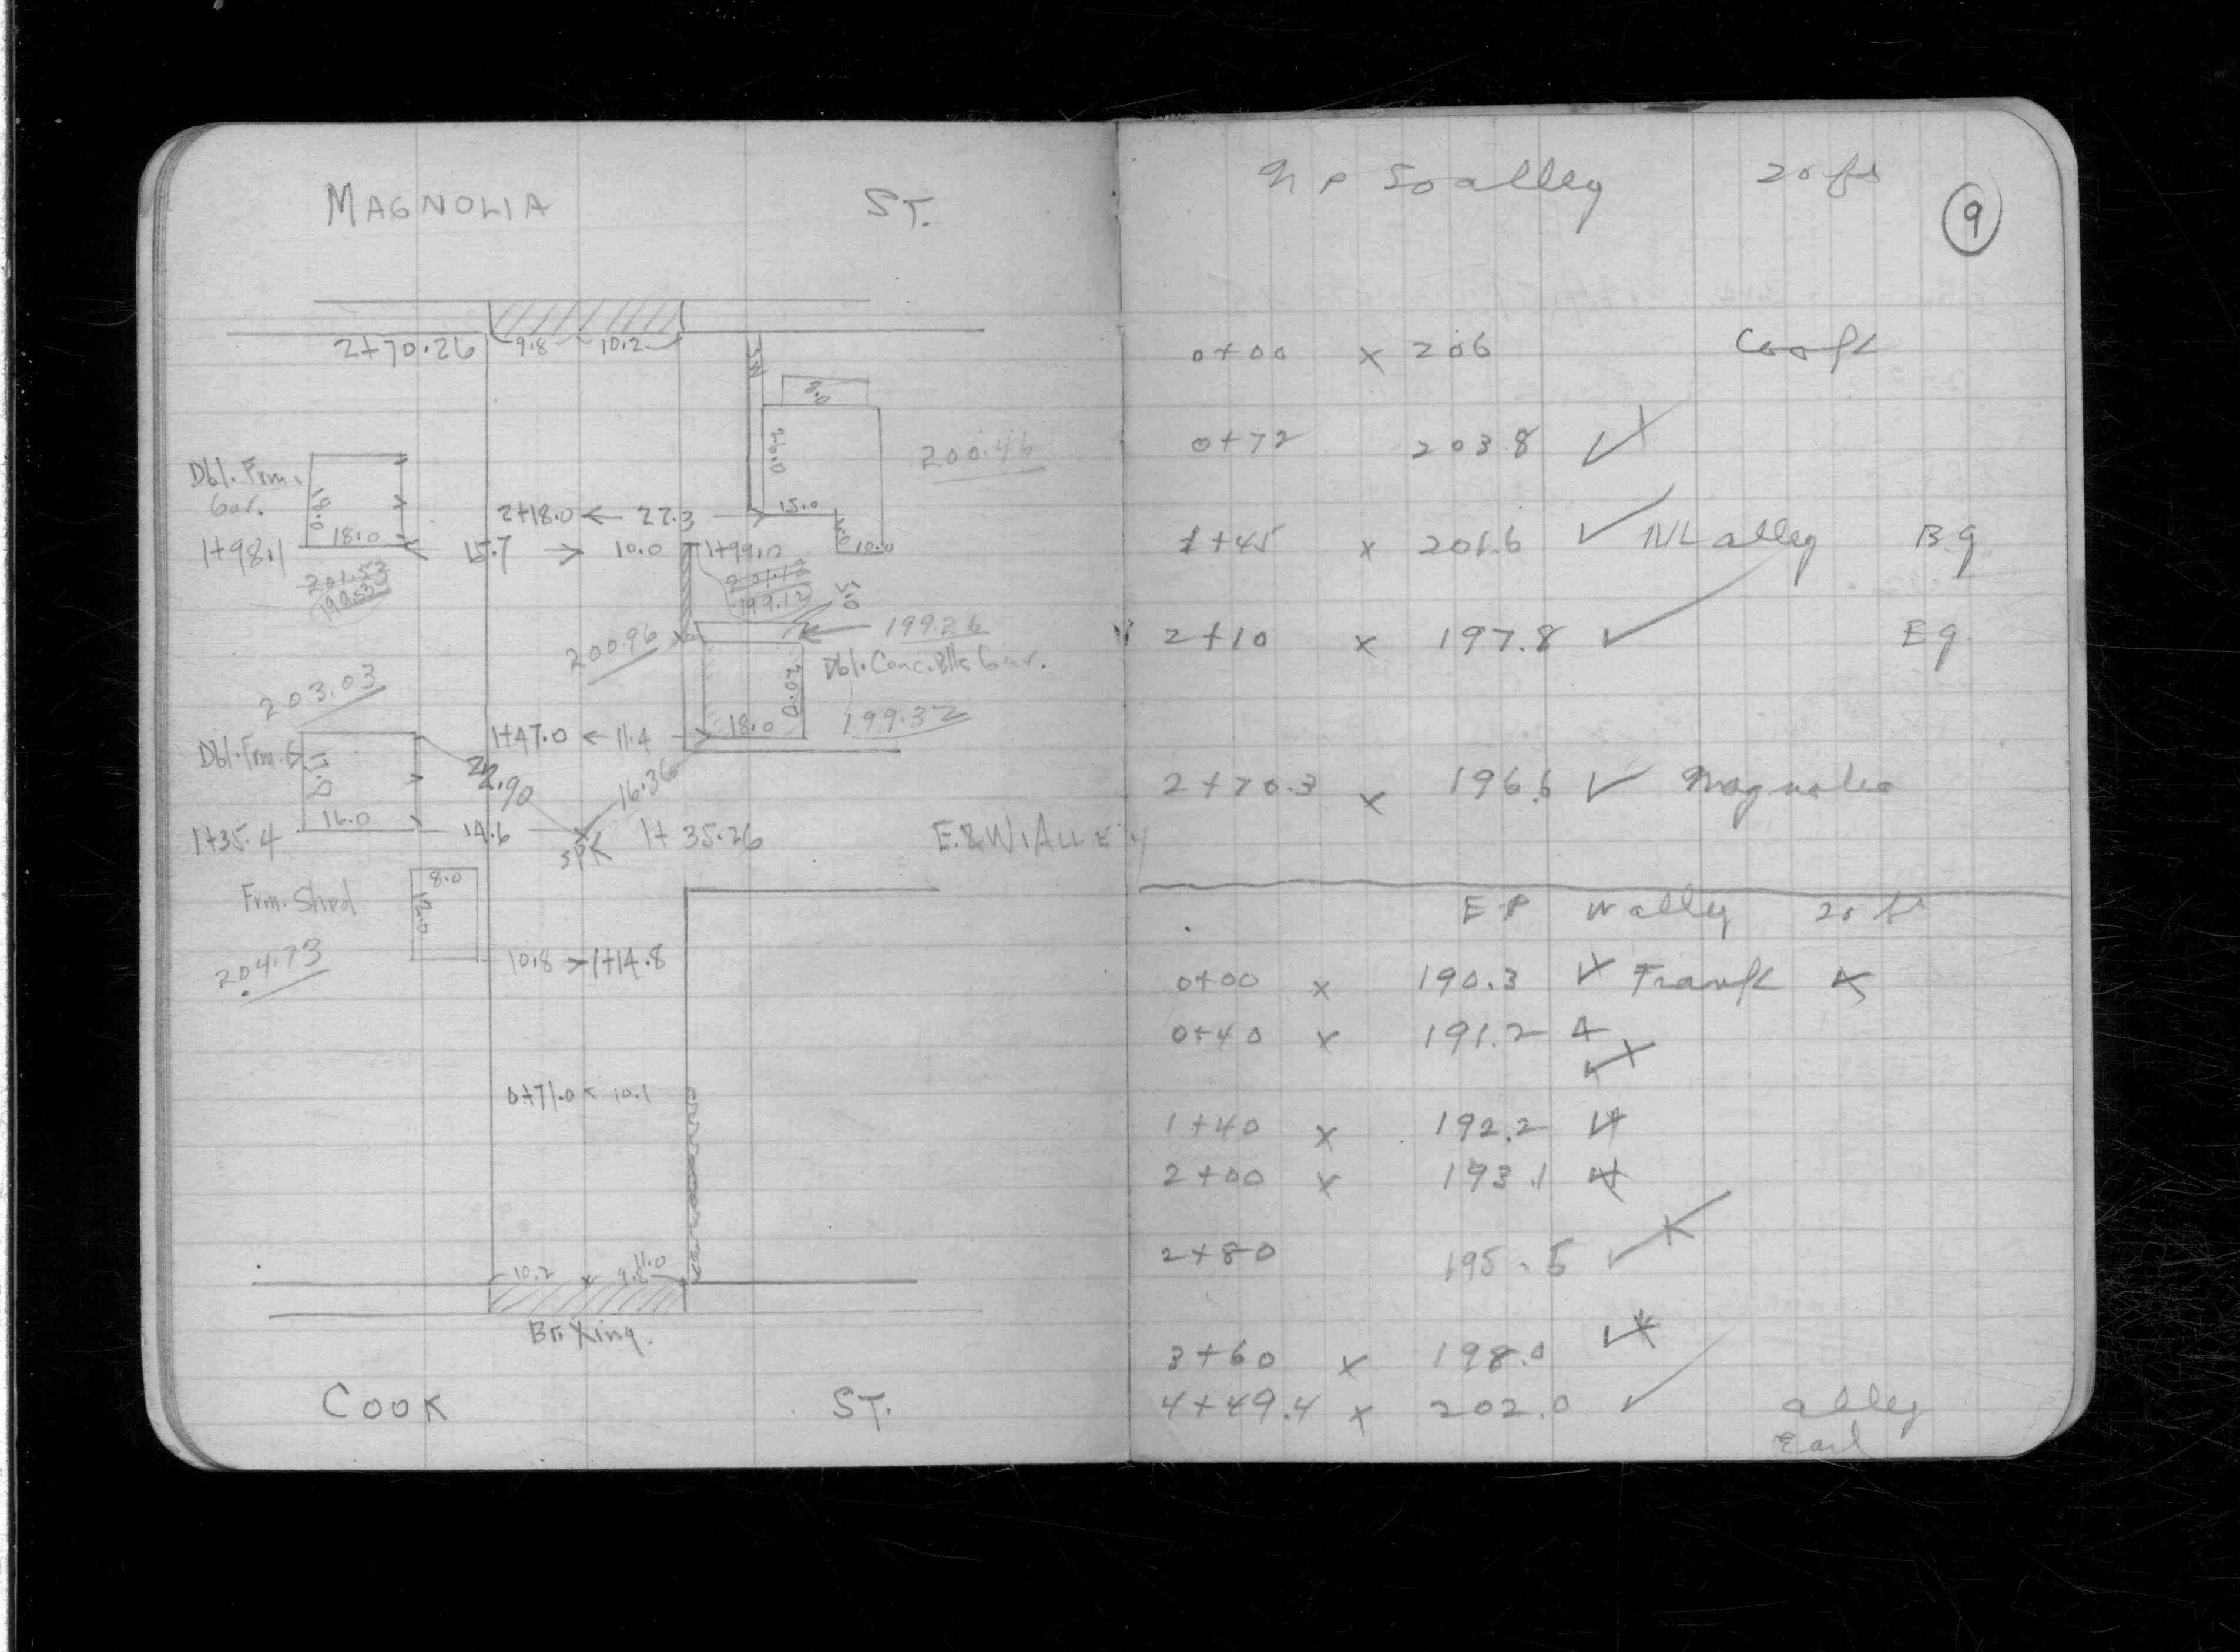 MAGNOLIA ST.
2+70.26 9.8 10.2
SSW
8.0
26.0
200.46
Dbl. Frm.
Gar.
18.0
18.0
1+98.1
2+18.0 ← 22.3
15.0
15.7 → 10.0
1+99.0
10.0
201.53
199.53
201.12
199.12
5.0
200.96
199.26
Dbl. Conc. Blk Gar.
20.0
18.0
199.32
203.03
1+47.0 ← 11.4
Dbl. Frm. G.
16.0
22.90
16.36
1+35.4
14.6
SPK
1+35.26
E.&W. ALLEY
8.0
12.0
Frm. Shed
204.73
10.8 > 1+14.8
0+71.0 < 10.1
10.2 9.8 11.0
Br Xing.
COOK ST.
N P So alley 20 ft
9
0+00 x 206 Cook
0+72 203.8 ✓
1+45 x 201.6 ✓ N/L alley B.g
2+10 x 197.8 ✓ E g.
2+70.3 x 196.6 ✓ Magnolia
E P N alley 20 ft
0+00 x 190.3 ✓ Frank
0+40 x 191.2 ✓
1+40 x 192.2 ✓
2+00 x 193.1 ✓
2+80 195.5 ✓
3+60 x 198.0 ✓
4+49.4 x 202.0 ✓ alley
Earl